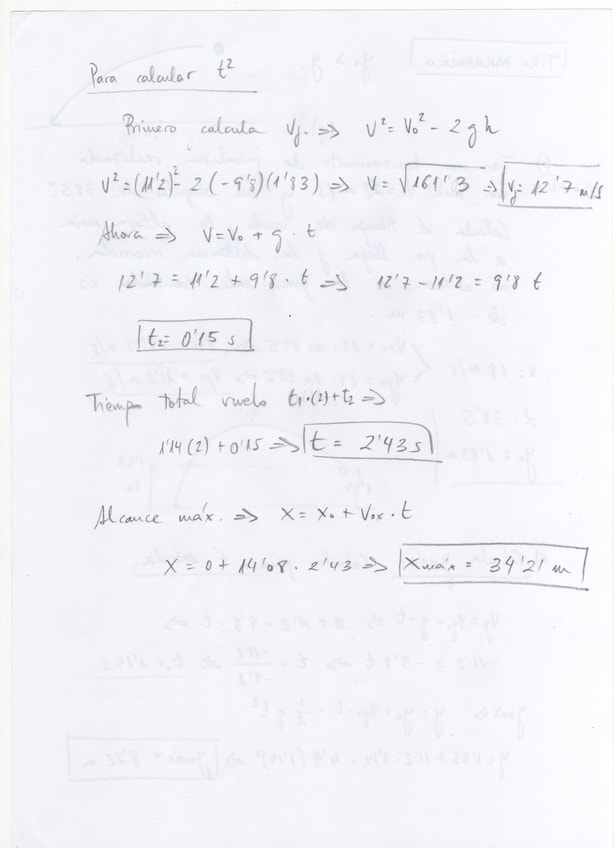 Para calcular t²
Primero calcula Vy. => V² = V₀² - 2gh
V² = (11'2)² - 2(-9'8)(1'83) => V = √161'3 => Vy = 12'7 m/s
Ahora => V = V₀ + g · t
12'7 = 11'2 + 9'8 · t => 12'7 - 11'2 = 9'8 t
t₂ = 0'15 s
Tiempo total vuelo t₁·(2) + t₂ =>
1'14 (2) + 0'15 => t = 2'43 s
Alcance máx. => X = X₀ + V₀ₓ · t
X = 0 + 14'08 · 2'43 => Xmáx = 34'21 m